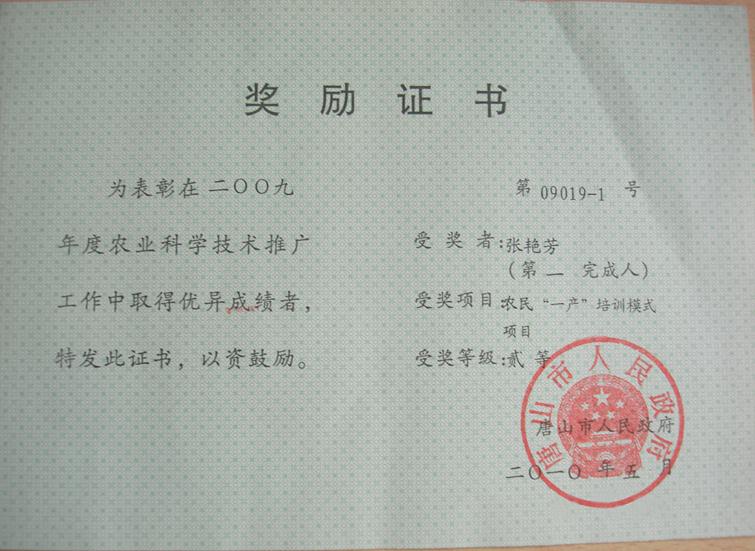 奖励证书
为表彰在二〇〇九
年度农业科学技术推广
工作中取得优异成绩者，
特发此证书，以资鼓励。
第 09019-1 号
受奖者：张艳芳
（第一完成人）
受奖项目：农民“一产”培训模式
项目
受奖等级：贰等
唐山市人民政府
唐山市人民政府
二〇一〇年五月